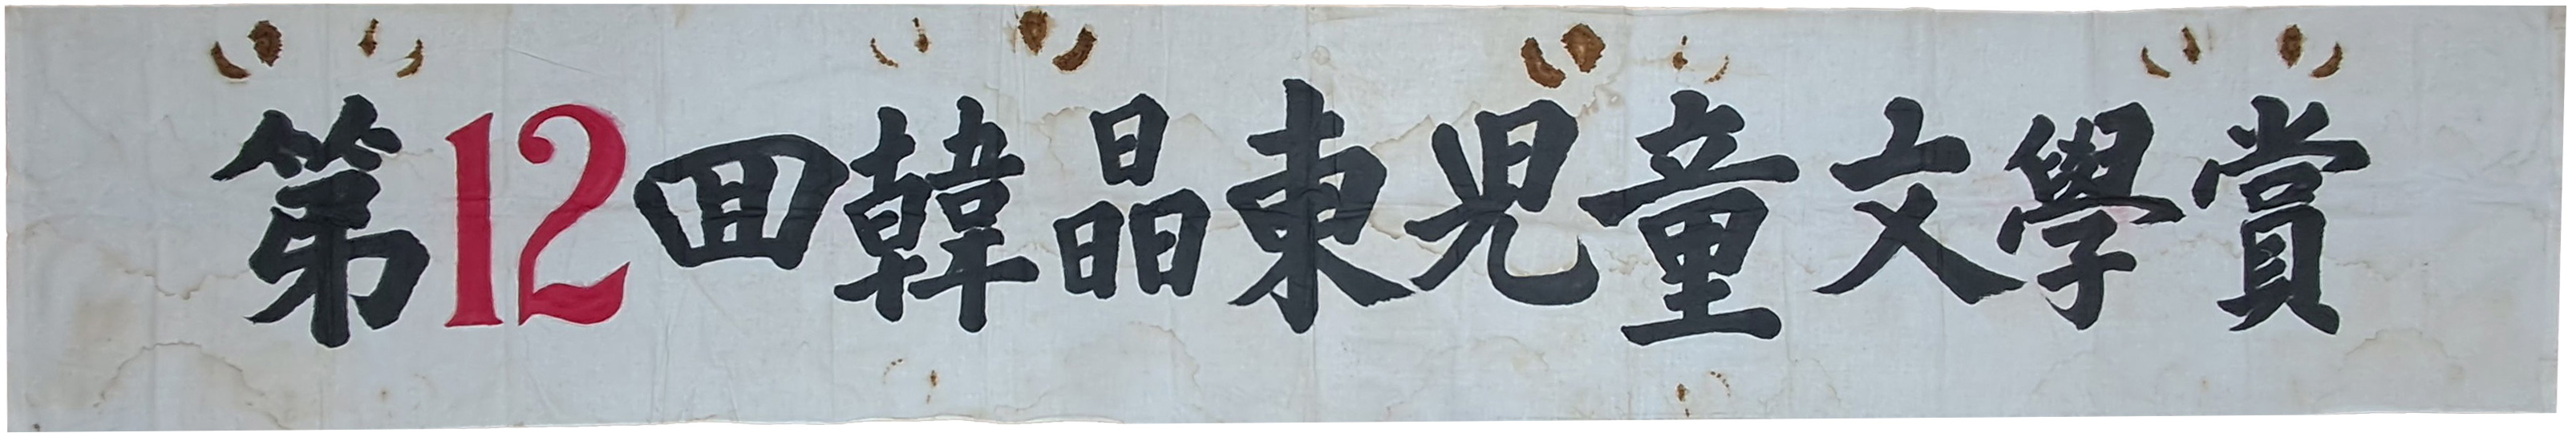 第12回韓晶東児童文學賞